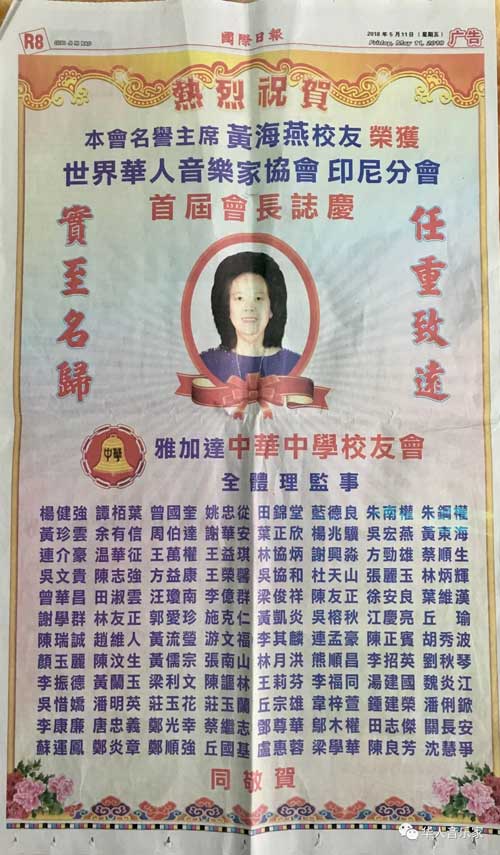 R8
國際日報
2018 年 5 月 11 日 (星期五)
Friday, May 11, 2018
广告
熱烈祝賀
本會名譽主席 黃海燕校友 榮獲
世界華人音樂家協會 印尼分會
首屆會長誌慶
任重致遠
實至名歸
中華
雅加達中華中學校友會
全體理監事
楊健強 譚栢葉 曾國奎 姚忠從 田錦堂 藍德良 朱南權 朱鋼權
黃珍雲 余有信 周伯達 謝華安 葉正欣 楊兆驥 吳宏燕 黃東海
連介豪 溫華征 王萬權 王益琪 林協炳 謝興淼 方勁雄 蔡順生
吳文貴 陳志強 方益康 王榮馨 吳協和 杜天山 張麗玉 林炳輝
曾華昌 田淑雲 汪瓊南 李億群 梁俊祥 陳友正 徐安良 葉維漢
謝學群 林友正 郭愛珍 施克仁 黃凱炎 吳榕秋 江慶亮 丘 瑜
陳瑞誠 趙維人 黃流螢 游文福 李其麟 連孟豪 陳正賓 胡秀波
顏玉麗 陳汶生 黃儒宗 張南山 林月洪 熊順昌 李招英 劉秋琴
李振德 黃蘭玉 梁利文 陳謳林 王莉芬 李福同 湯建國 魏炎江
吳惜嬌 潘明英 莊玉花 莊謳蘭 丘宗雄 韋梓萱 鍾建榮 潘俐鍁
李康廉 唐忠義 鄭光幸 蔡繼志 鄧尊華 鄔木權 田志傑 關長安
蘇運鳳 鄭炎章 鄭順強 丘國基 盧惠蓉 梁學華 陳良芳 沈慧爭
同敬賀
华人音乐家